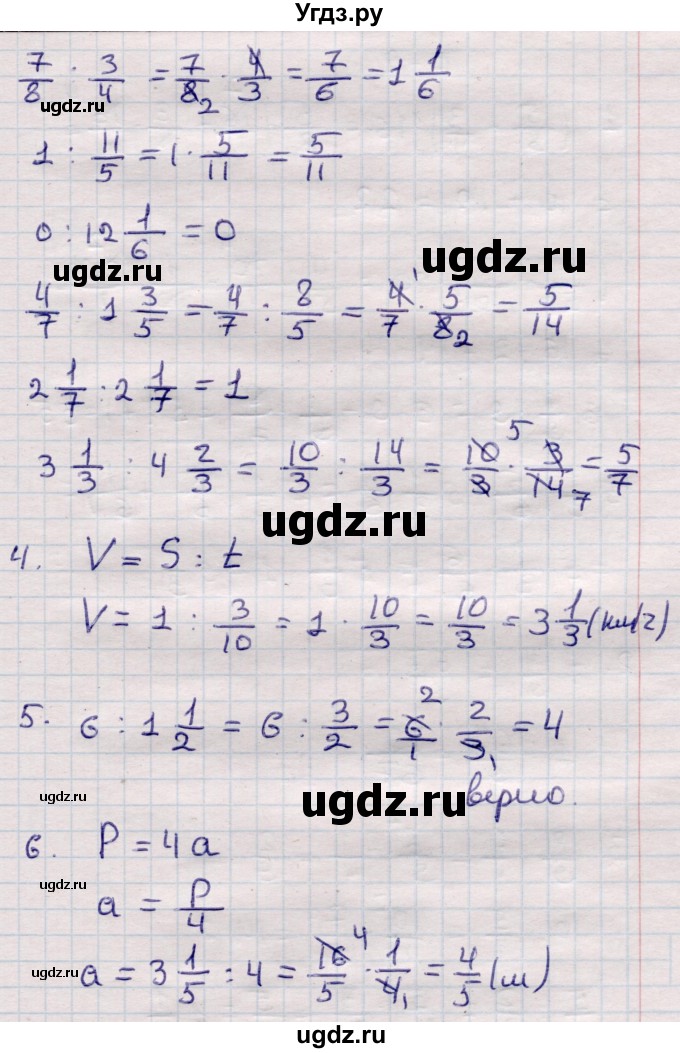 Угдз.ру
7/8 · 3/4 = 7/8 2 · 4/3 = 7/6 = 1 1/6
ugdz.ru
ugdz.ru
1 : 11/5 = 1 · 5/11 = 5/11
0 : 12 1/6 = 0
ugdz.ru
ugdz.ru
4/7 : 1 3/5 = 4/7 : 8/5 = 4 1/7 · 5/8 2 = 5/14
2 1/7 : 2 1/7 = 1
3 1/3 : 4 2/3 = 10/3 : 14/3 = 10 5/3 · 3/14 7 = 5/7
ugdz.ru
4. V = S : t
V = 1 : 3/10 = 1 · 10/3 = 10/3 = 3 1/3 (км/ч)
ugdz.ru
5. 6 : 1 1/2 = 6 : 3/2 = 6 2/1 · 2/3 1 = 4
ugdz.ru
ugdz.ru
верно.
6. P = 4a
ugdz.ru
a = P/4
a = 3 1/5 : 4 = 16 4/5 · 1/4 1 = 4/5 (м)
ugdz.ru
ugdz.ru